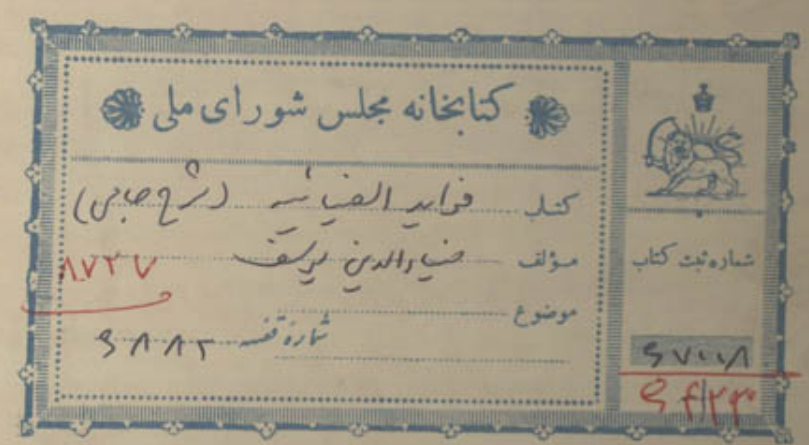 کتابخانه مجلس شورای ملی
کتاب فواید الضیائیه (شرح جامی)
مؤلف ضیاءالدین یوسف
۸۷۲۷
موضوع
شماره قفسه ۶۸۸۲
شماره ثبت کتاب
۶۷۰۰۸